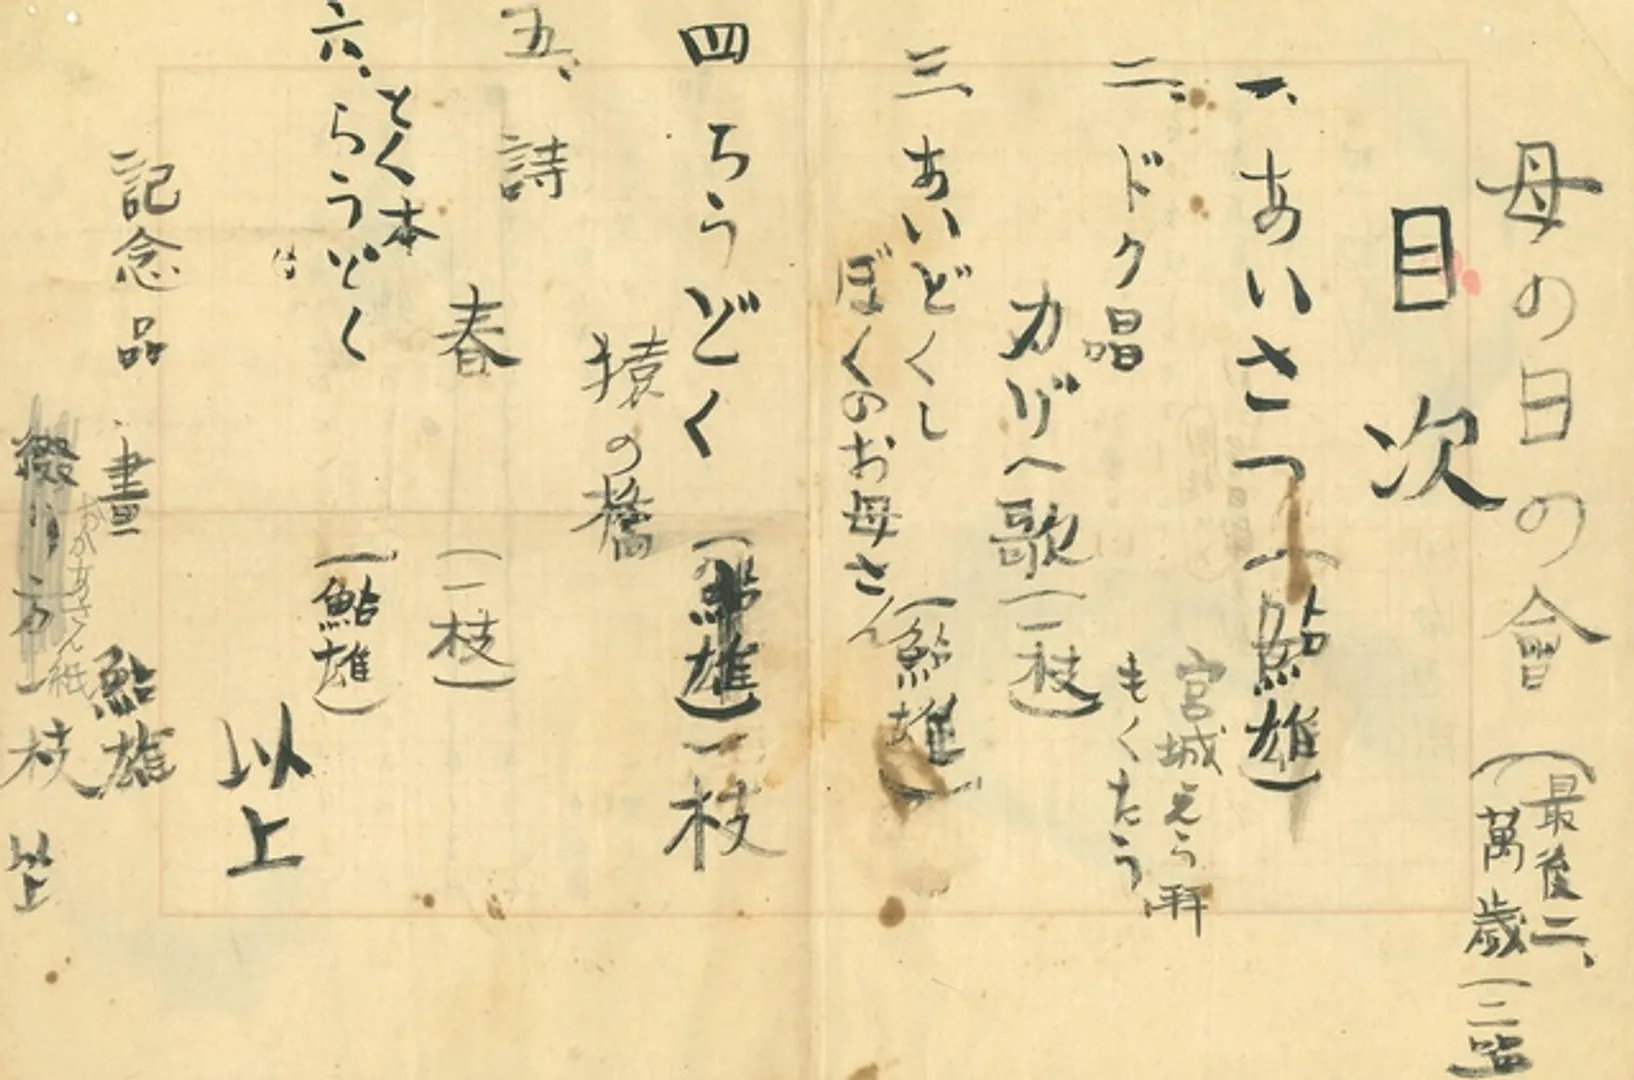 母の日の會
(最後二、
萬歳
目次
一、あいさつ(鮎雄)
宮城えう拜
もくたう
二、ドク唱
カゾへ歌(一枝)
三、あいどくし
ぼくのお母さん(鮎雄)
四 らうどく(鮎雄)一枝
猿の橋
五、詩
春(一枝)
六、とく本
らうどく(鮎雄)
以上
記念品 畫 鮎雄
綴り方 一枝
おかあさん紙
以上